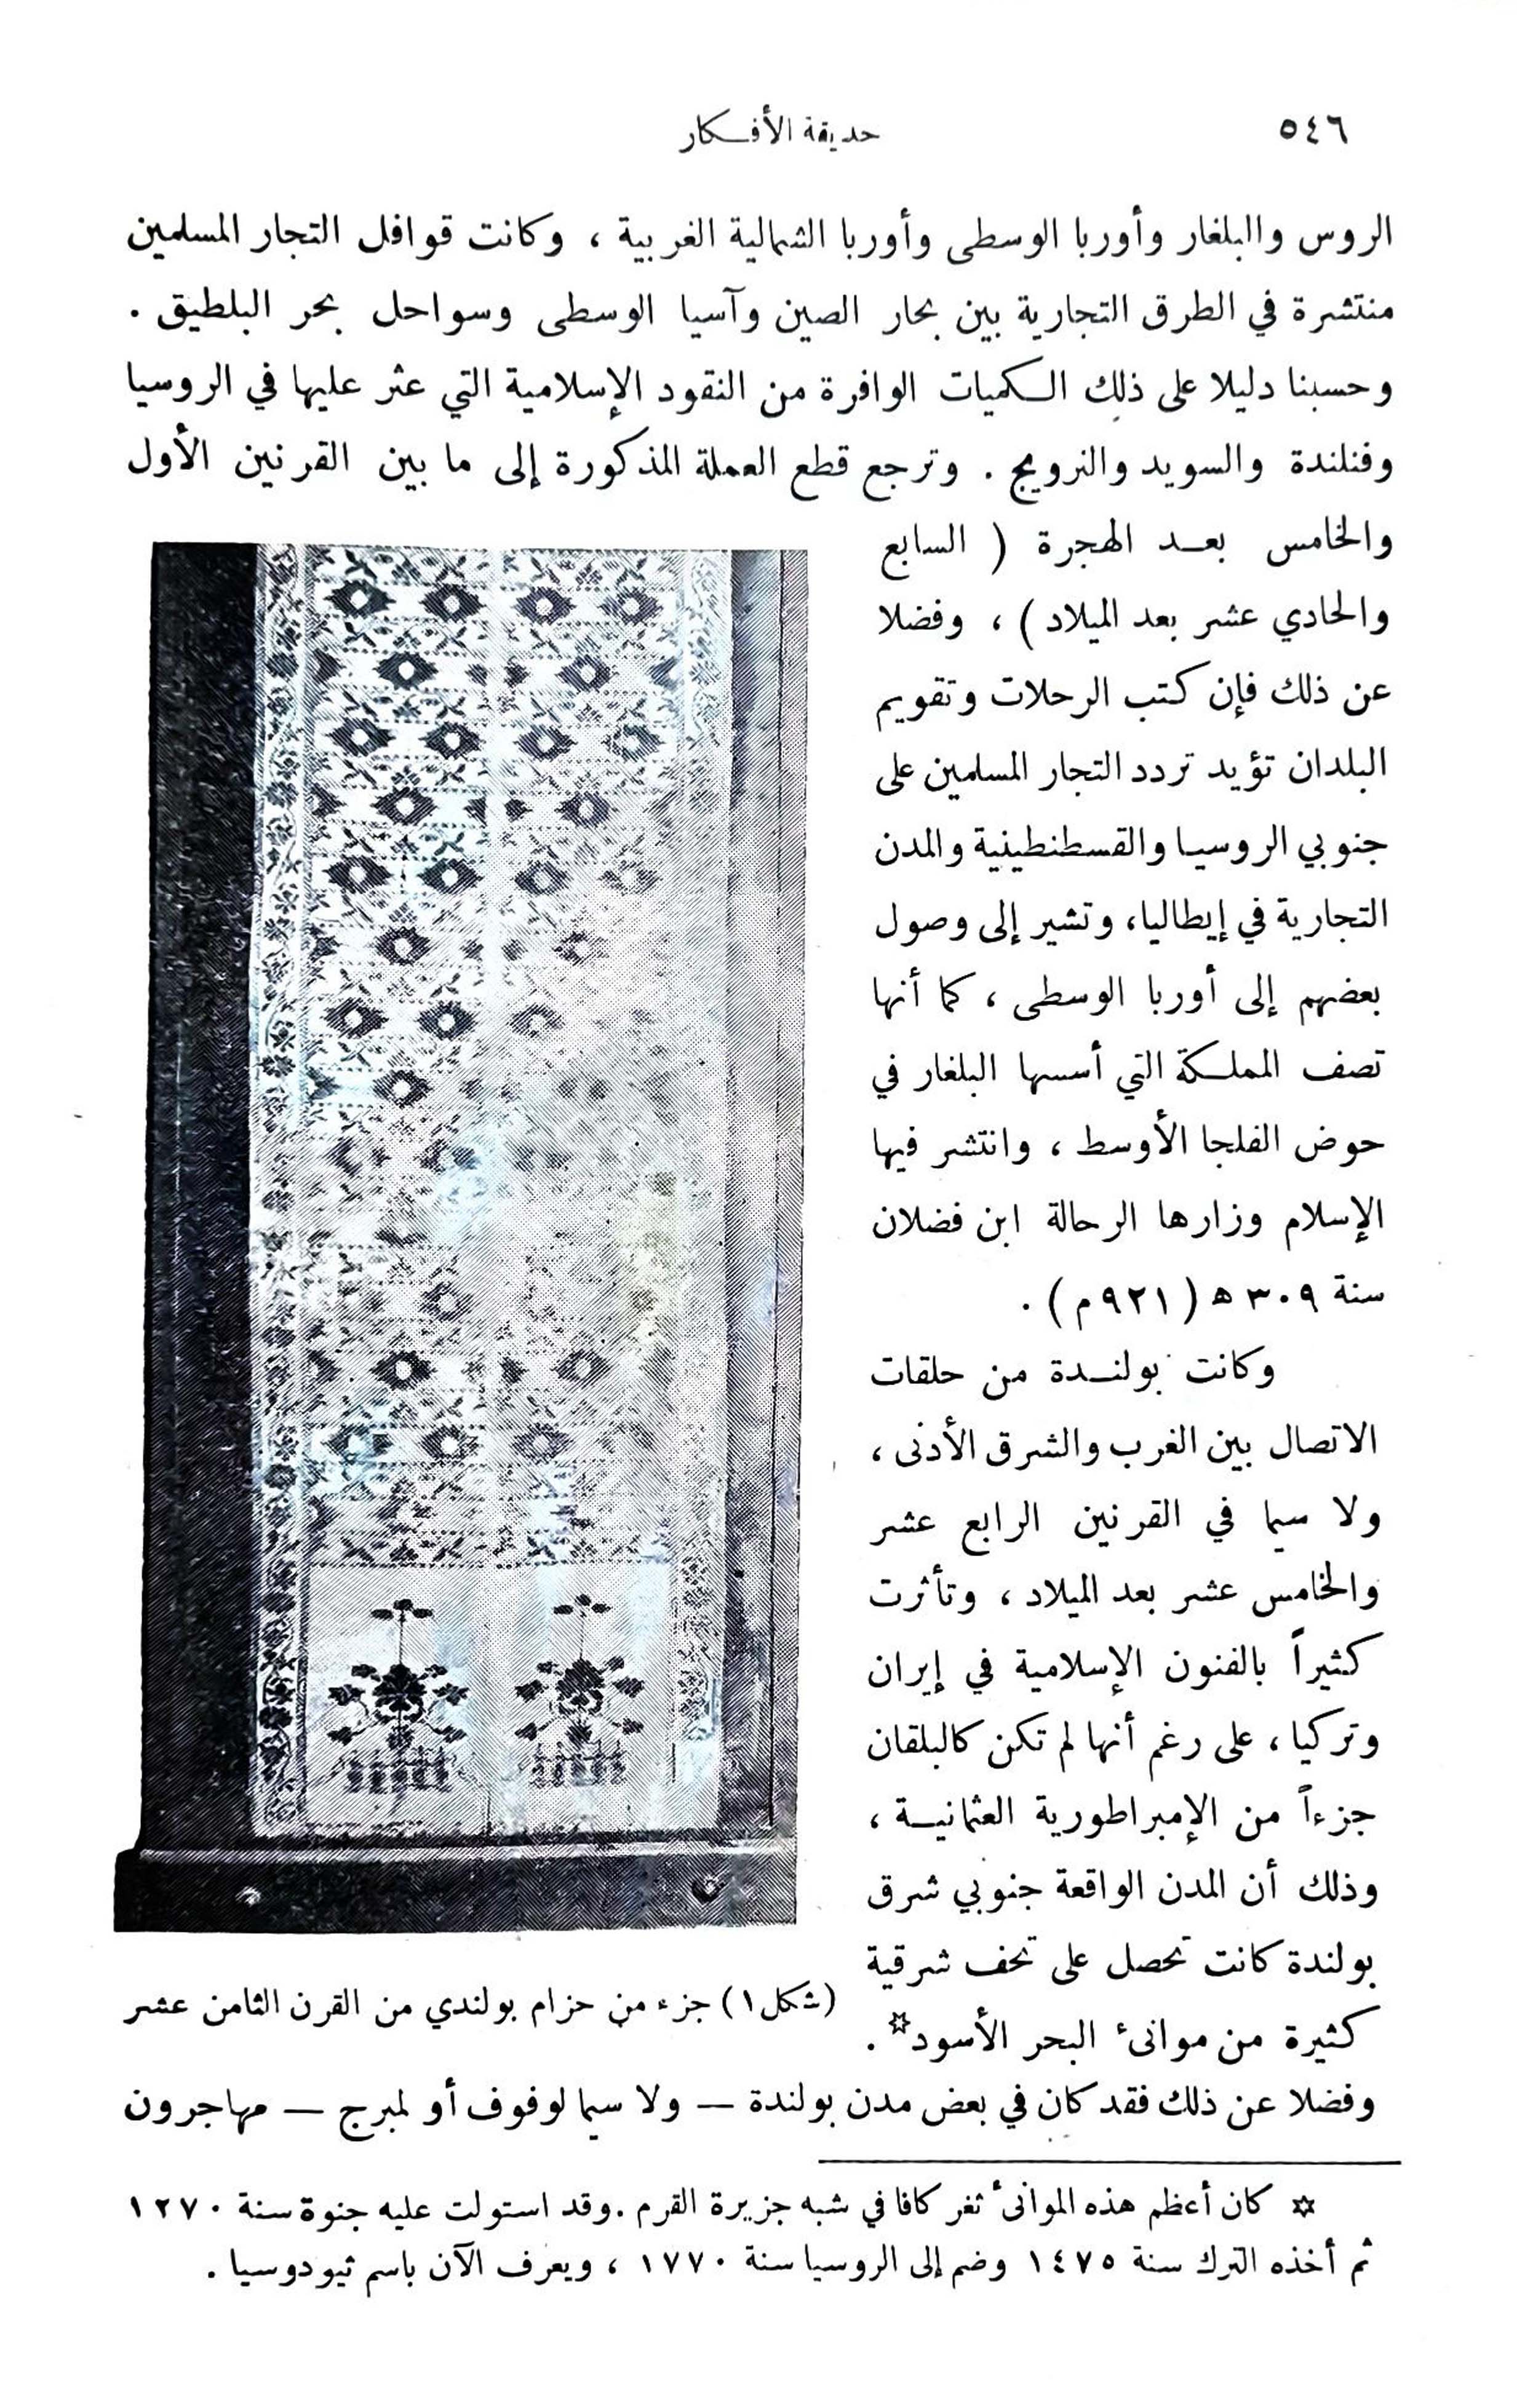 ٥٤٦
حديقة الأفكار
الروس والبلغار وأوربا الوسطى وأوربا الشمالية الغربية ، وكانت قوافل التجار المسلمين
منتشرة في الطرق التجارية بين بحار الصين وآسيا الوسطى وسواحل بحر البلطيق .
وحسبنا دليلا على ذلك الكميات الوافرة من النقود الإسلامية التي عثر عليها في الروسيا
وفنلندة والسويد والنرويج . وترجع قطع العملة المذكورة إلى ما بين القرنين الأول
والخامس بعد الهجرة ( السابع
والحادي عشر بعد الميلاد ) ، وفضلا
عن ذلك فإن كتب الرحلات وتقويم
البلدان تؤيد تردد التجار المسلمين على
جنوبي الروسيا والقسطنطينية والمدن
التجارية في إيطاليا، وتشير إلى وصول
بعضهم إلى أوربا الوسطى ، كما أنها
تصف المملكة التي أسسها البلغار في
حوض الفلجا الأوسط ، وانتشر فيها
الإسلام وزارها الرحالة ابن فضلان
سنة ٣٠٩ ه ( ٩٢١ م ) .
وكانت بولندة من حلقات
الاتصال بين الغرب والشرق الأدنى ،
ولا سيما في القرنين الرابع عشر
والخامس عشر بعد الميلاد ، وتأثرت
كثيراً بالفنون الإسلامية في إيران
وتركيا ، على رغم أنها لم تكن كالبلقان
جزءاً من الإمبراطورية العثمانية ،
وذلك أن المدن الواقعة جنوبي شرق
بولندة كانت تحصل على تحف شرقية
كثيرة من موانىء البحر الأسود* .
(شكل ١) جزء من حزام بولندي من القرن الثامن عشر
وفضلا عن ذلك فقد كان في بعض مدن بولندة — ولا سيما لوفوف أو لمبرج — مهاجرون
* كان أعظم هذه الموانىء ثغر كافا في شبه جزيرة القرم . وقد استولت عليه جنوة سنة ١٢٧٠
ثم أخذه الترك سنة ١٤٧٥ وضم إلى الروسيا سنة ١٧٧٠ ، ويعرف الآن باسم ثيودوسيا .